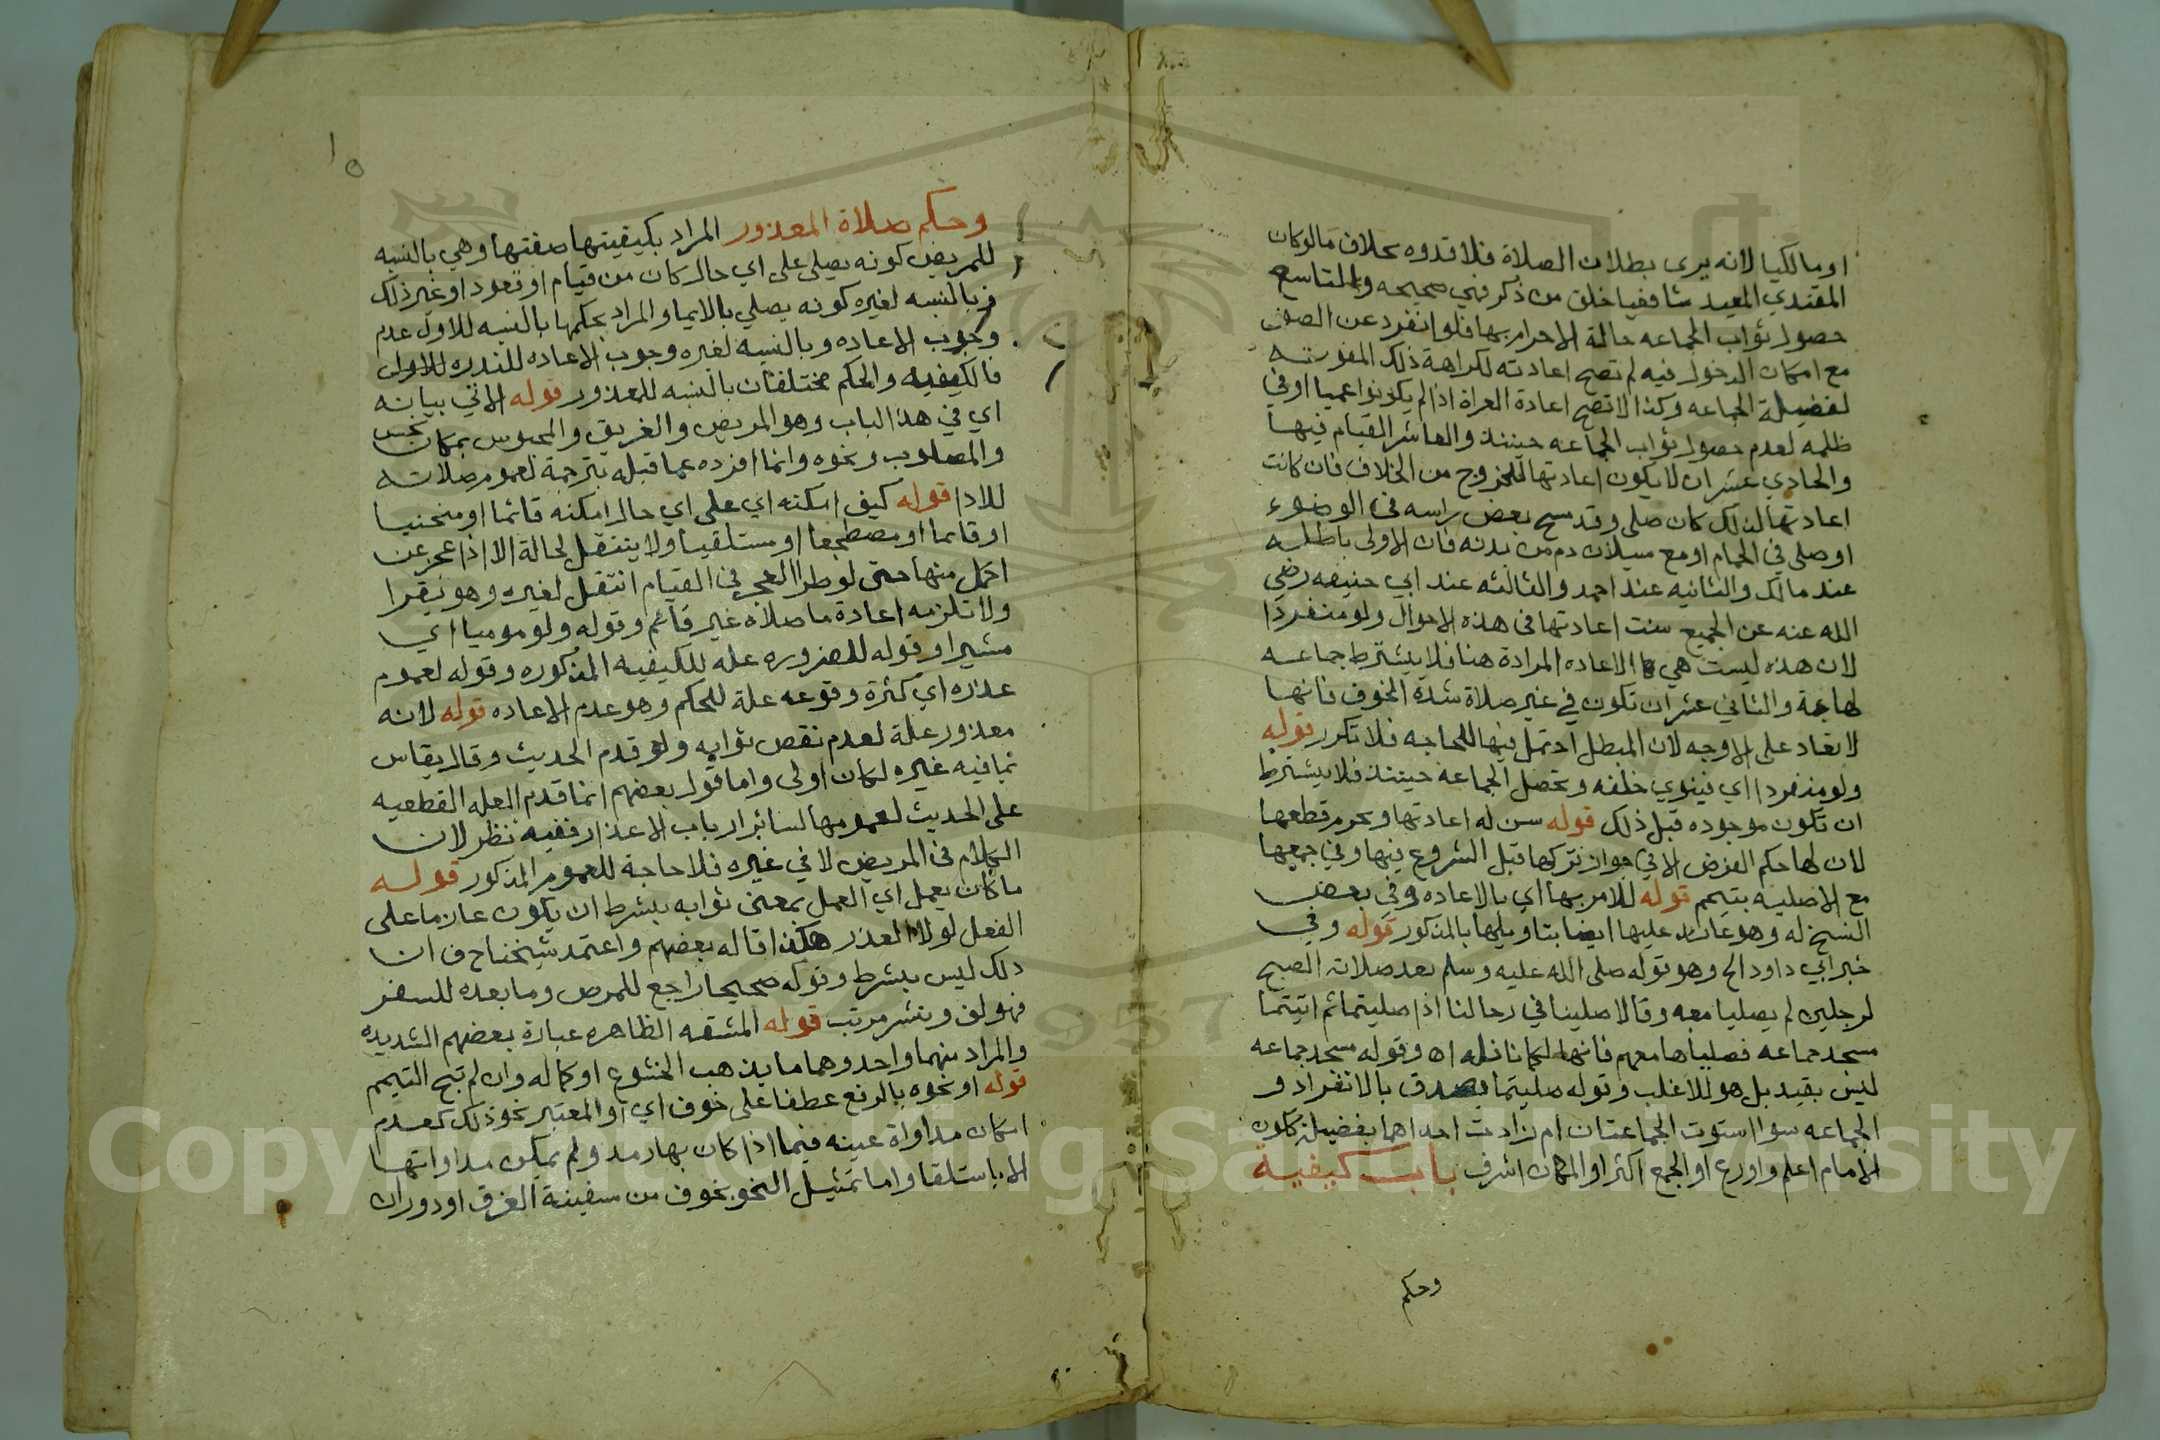 او مالكيا لانه يرى بطلان الصلاة فلا قدوه بخلاف ما لو كان
المقتدي المعيد شافعيا خلف من ذكر فهي صحيحه والتاسع
حصول ثواب الجماعه حالة الاحرام بها فلو انفرد عن الصف
مع امكان الدخول فيه لم تصح اعادته لكراهة ذلك المفوتـه
لفضيلة الجماعه وكذا لا تصح اعادة العراة اذا لم يكونوا عميا او في
ظلمه لعدم حصول ثواب الجماعه حينئذ والعاشر القيام فيهـا
والحادي عشر ان لا يكون اعادتها للخروج من الخلاف فان كانت
اعادتها لذلك كان صلى وقد مسح بعض راسه في الوضوء
او صلى في الحمام او مع سيلان دم من بدنه فان الاولى باطلـه
عند مالك والثانيه عند احمد والثالثه عند ابي حنيفه رضي
الله عنه عن الجميع سنت اعادتها في هذه الاحوال ولو منفردا
لان هذه ليست هي الاعاده المرادة هنا فلا يشترط جماعـه
لها والثاني عشر ان تكون في غير صلاة شدة الخوف فانهـا
لا تعاد على الاوجه لان المبطل احتمل فيها للحاجه فلا تكرر قوله
ولو منفردا اي فينوي خلفه وتحصل الجماعه حينئذ فلا يشترط
ان تكون موجوده قبل ذلك قوله سن له اعادتها ويحرم قطعها
لان لها حكم الفرض الا في جواز تركها قبل الشروع فيها وفي جمعها
مع الاصليه بتيمم قوله للامر بها اي بالاعاده وفي بعض
النسخ له وهو عائد عليها ايضا بتاويلها بالمذكور قوله وفي
خبر ابي داود الخ وهو قوله صلى الله عليه وسلم بعد صلاته الصبح
لرجلين لم يصليا معه وقالا صلينا في رحالنا اذا صليتما ثم اتيتما
مسجد جماعه فصلياها معهم فانها لكما نافله اه وقوله مسجد جماعه
ليس بقيد بل هو للاغلب وقوله صليتما يصدق بالانفراد و
الجماعه سوا استوت الجماعتان ام زادت احداهما بفضيلة ككون
الامام اعلم واورع او الجمع اكثر او المكان اشرف باب كيفية
وحكم
١٥
وحكم صلاة المعذور المراد بكيفيتها صفتها وهي بالنسبه
للمريض كونه يصلي على اي حال كان من قيام او قعود او غير ذلك
وبالنسبه لغيره كونه يصلي بالايما والمراد بحكمها بالنسبه للاول عدم
وجوب الاعاده وبالنسبه لغيره وجوب الاعاده للندره للاولى
فالكيفيه والحكم مختلفان بالنسبه للمعذور قوله الاتي بيانـه
اي في هذا الباب وهو المريض والغريق والمحبوس بمكان نجس
والمصلوب ونحوه وانما افرده عما قبله بترجمة لعموم صلاتـه
للادا قوله كيف امكنه اي على اي حال امكنه قائما او منحنيـا
او قائما او مضطجعا او مستلقيا ولا ينتقل لحالة الا اذا عجز عن
اكمل منها حتى لو طرا العجز في القيام انتقل لغيره وهو يقرا
ولا تلزمه اعادة ما صلاه غير قائم وقوله ولو موميا اي
مشيرا وقوله للضروره عله للكيفيه المذكوره وقوله لعموم
عذره اي كثرة وقوعه علة للحكم وهو عدم الاعاده قوله لانه
معذور علة لعدم نقص ثوابه ولو قدم الحديث وقال يقاس
بما فيه غيره لكان اولى واما قول بعضهم انما قدم العله القطعيه
على الحديث لعمومها لسائر ارباب الاعذار ففيه نظر لان
الكلام في المريض لا في غيره فلا حاجة للعموم المذكور قولـه
ما كان يعمل اي العمل بمعنى ثوابه بشرط ان يكون عازما على
الفعل لولا العذر هكذا قاله بعضهم واعتمد شيخنا ح ف ان
ذلك ليس بشرط وقوله صحيحا راجع للمرض وما بعده للسفر
فهو لف ونشر مرتب قوله المشقه الظاهره عبارة بعضهم الشديده
والمراد منهما واحد وهما ما يذهب الخشوع او كماله وان لم تبح التيمم
قوله او نحوه بالرفع عطفا على خوف اي او المعتبر نحو ذلك كعدم
امكان مداواة عينه فيما اذا كان بها رمد ولم يمكن مداواتهـا
الا باستلقا واما تمثيل النحو بخوف من سفينة الغرق او دوران